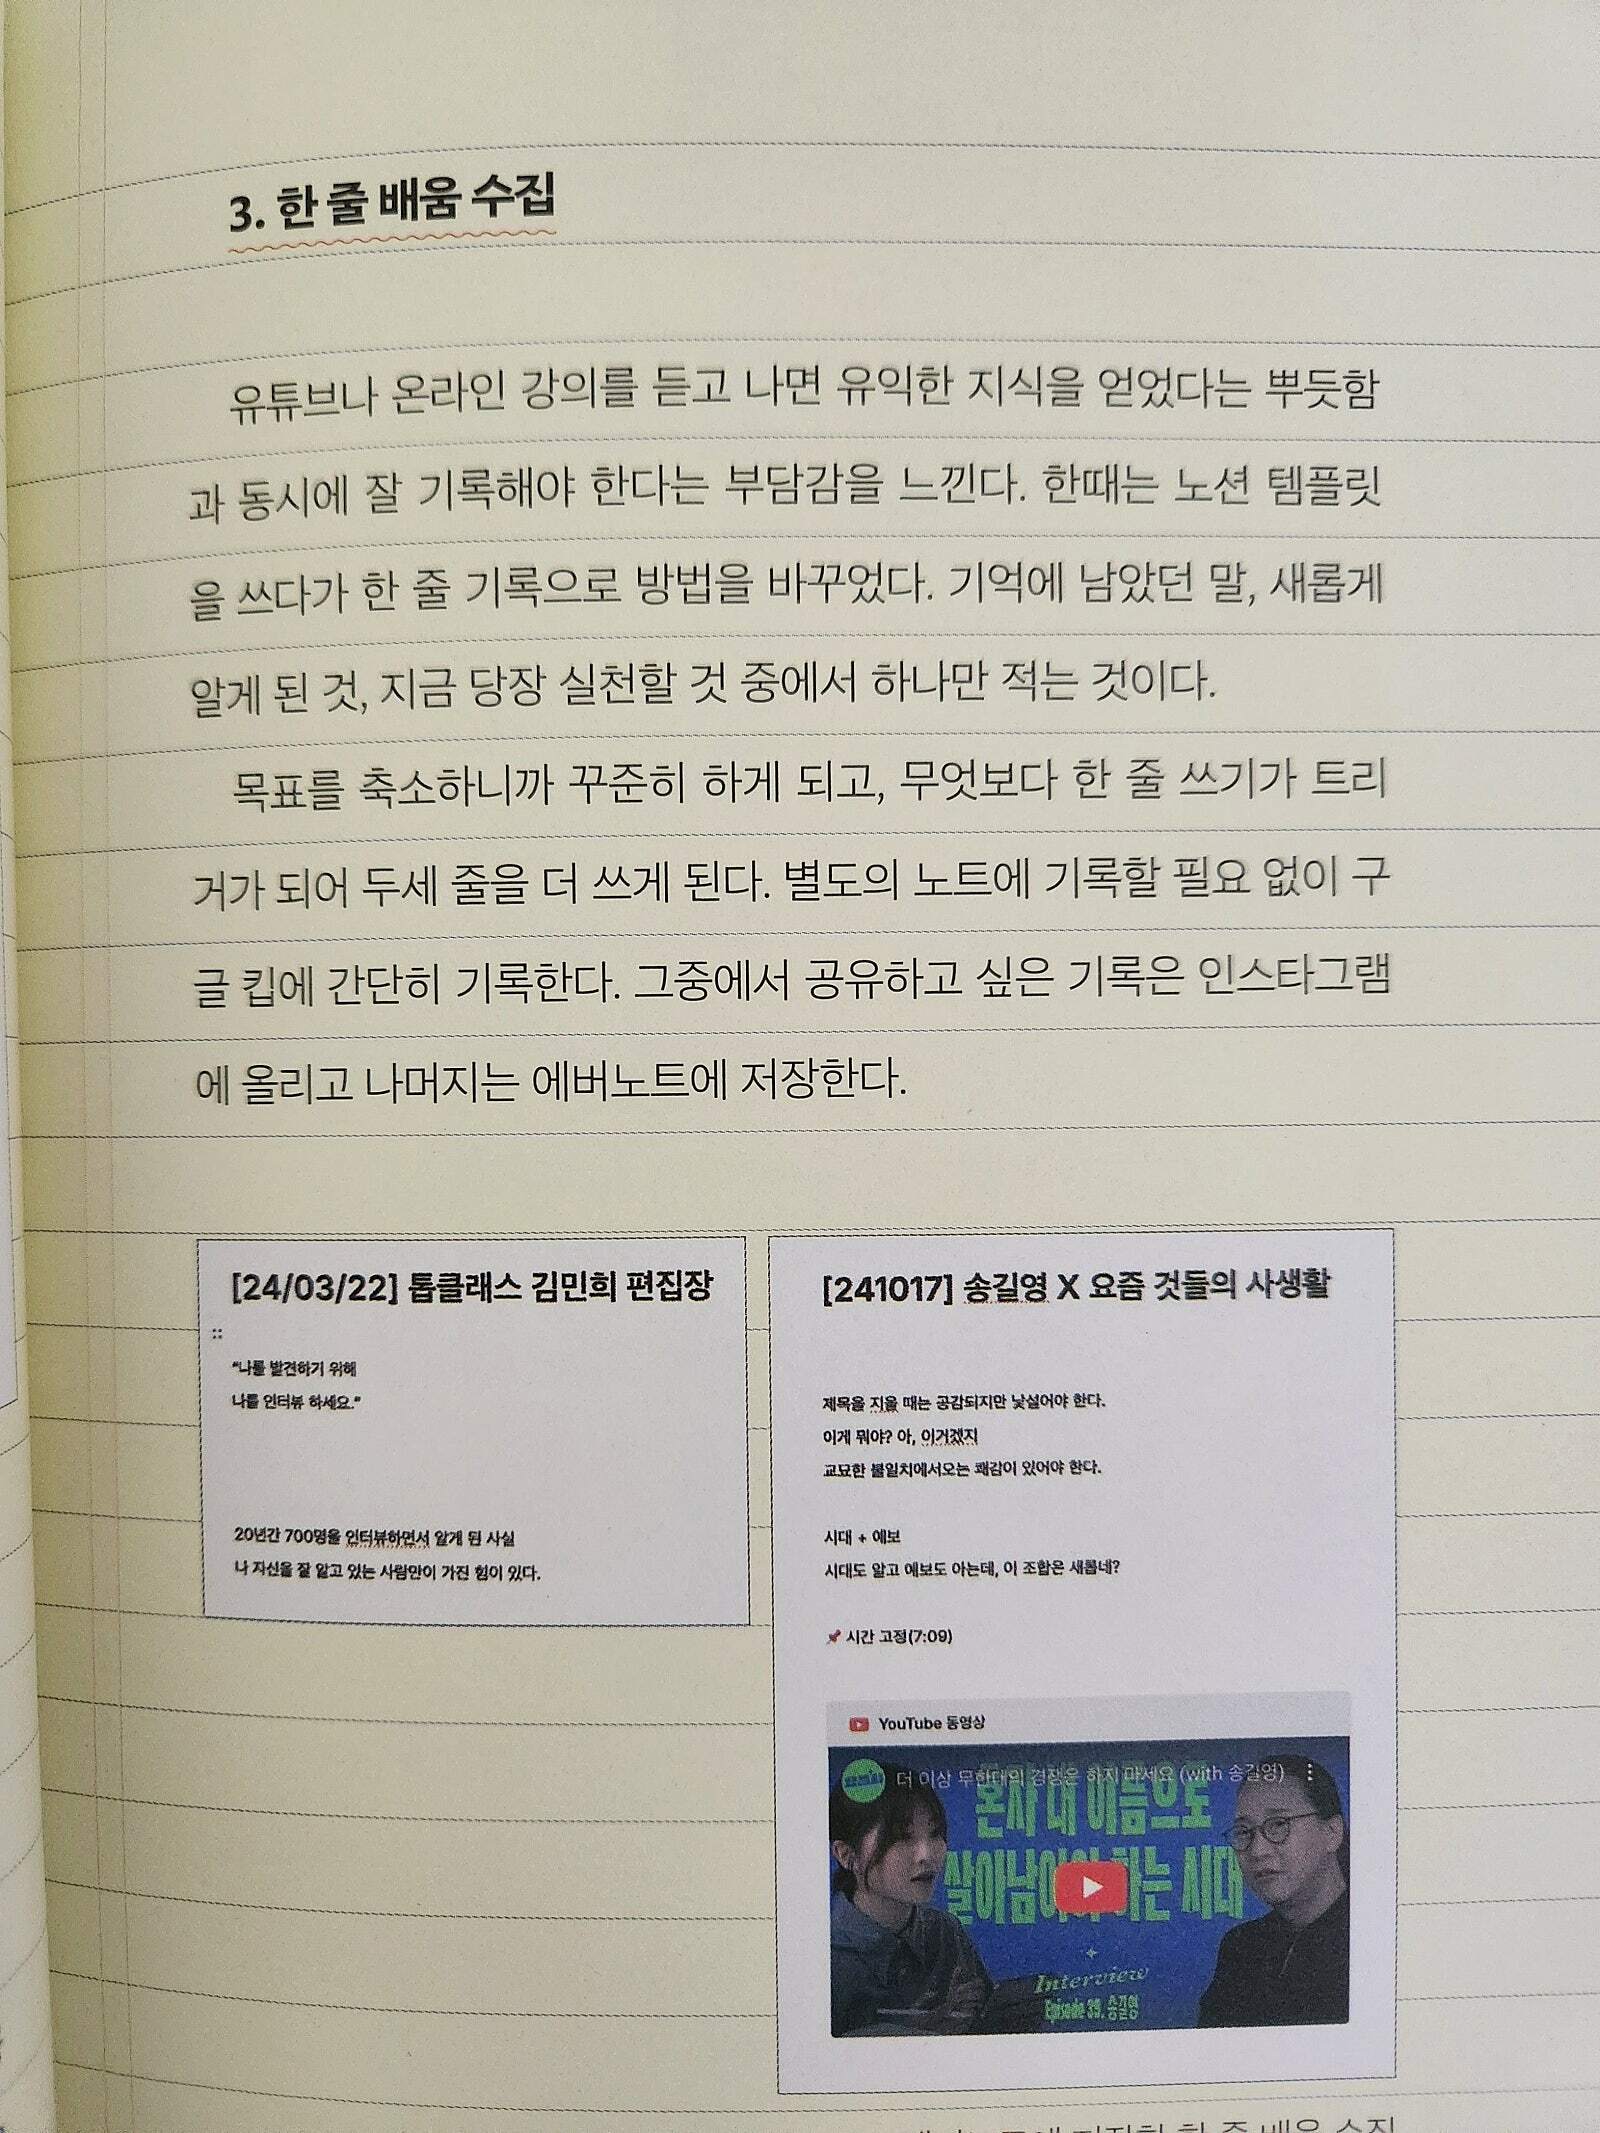 3. 한 줄 배움 수집
유튜브나 온라인 강의를 듣고 나면 유익한 지식을 얻었다는 뿌듯함
과 동시에 잘 기록해야 한다는 부담감을 느낀다. 한때는 노션 템플릿
을 쓰다가 한 줄 기록으로 방법을 바꾸었다. 기억에 남았던 말, 새롭게
알게 된 것, 지금 당장 실천할 것 중에서 하나만 적는 것이다.
목표를 축소하니까 꾸준히 하게 되고, 무엇보다 한 줄 쓰기가 트리
거가 되어 두세 줄을 더 쓰게 된다. 별도의 노트에 기록할 필요 없이 구
글 킵에 간단히 기록한다. 그중에서 공유하고 싶은 기록은 인스타그램
에 올리고 나머지는 에버노트에 저장한다.
[24/03/22] 톱클래스 김민희 편집장
“나를 발견하기 위해
나를 인터뷰 하세요.”
20년간 700명을 인터뷰하면서 알게 된 사실
나 자신을 잘 알고 있는 사람만이 가진 힘이 있다.
[241017] 송길영 X 요즘 것들의 사생활
제목을 지을 때는 공감되지만 낯설어야 한다.
이게 뭐야? 아, 이거겠지
교묘한 불일치에서오는 쾌감이 있어야 한다.
시대 + 예보
시대도 알고 예보도 아는데, 이 조합은 새롭네?
시간 고정(7:09)
YouTube 동영상
요즘사
더 이상 무한대의 경쟁은 하지 마세요 (with 송길영)
혼자 내 이름으로
살아남아야 하는 시대
Interview
Episode 39. 송길영
저장한 한 줄 배움 수집